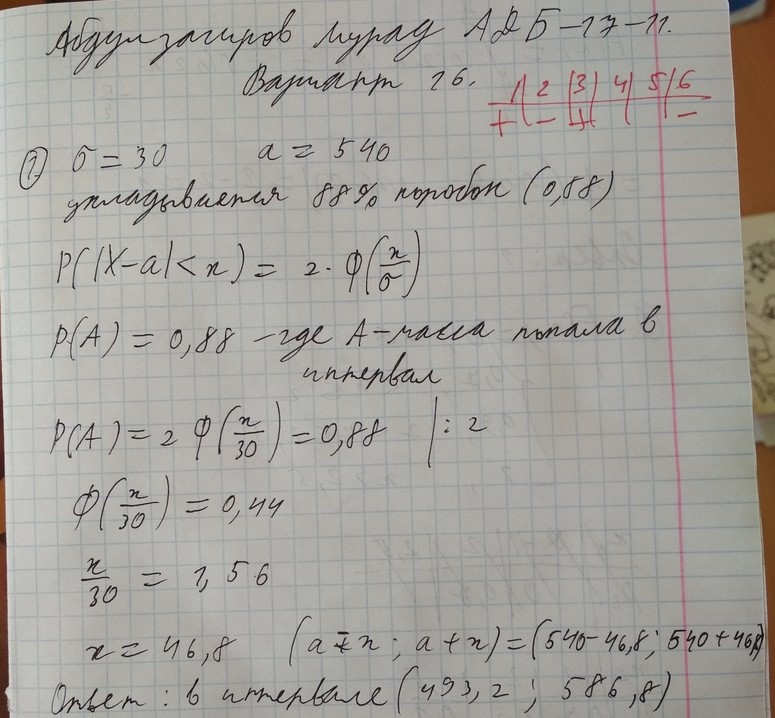 Абдулзагиров Мурад АДБ-17-11.
Вариант 26.
1 | 2 | 3 | 4 | 5 | 6
+ | - | + | | | -
1. σ = 30 a = 540
укладывается 88% коробок (0,88)
P(|X-a|<x) = 2·Ф(x/σ)
P(A) = 0,88 - где A-масса попала в
интервал
P(A) = 2 Ф(x/30) = 0,88 | : 2
Ф(x/30) = 0,44
x/30 = 1,56
x = 46,8 (a-x ; a+x) = (540-46,8; 540+46,8)
Ответ: в интервале (493,2 ; 586,8)